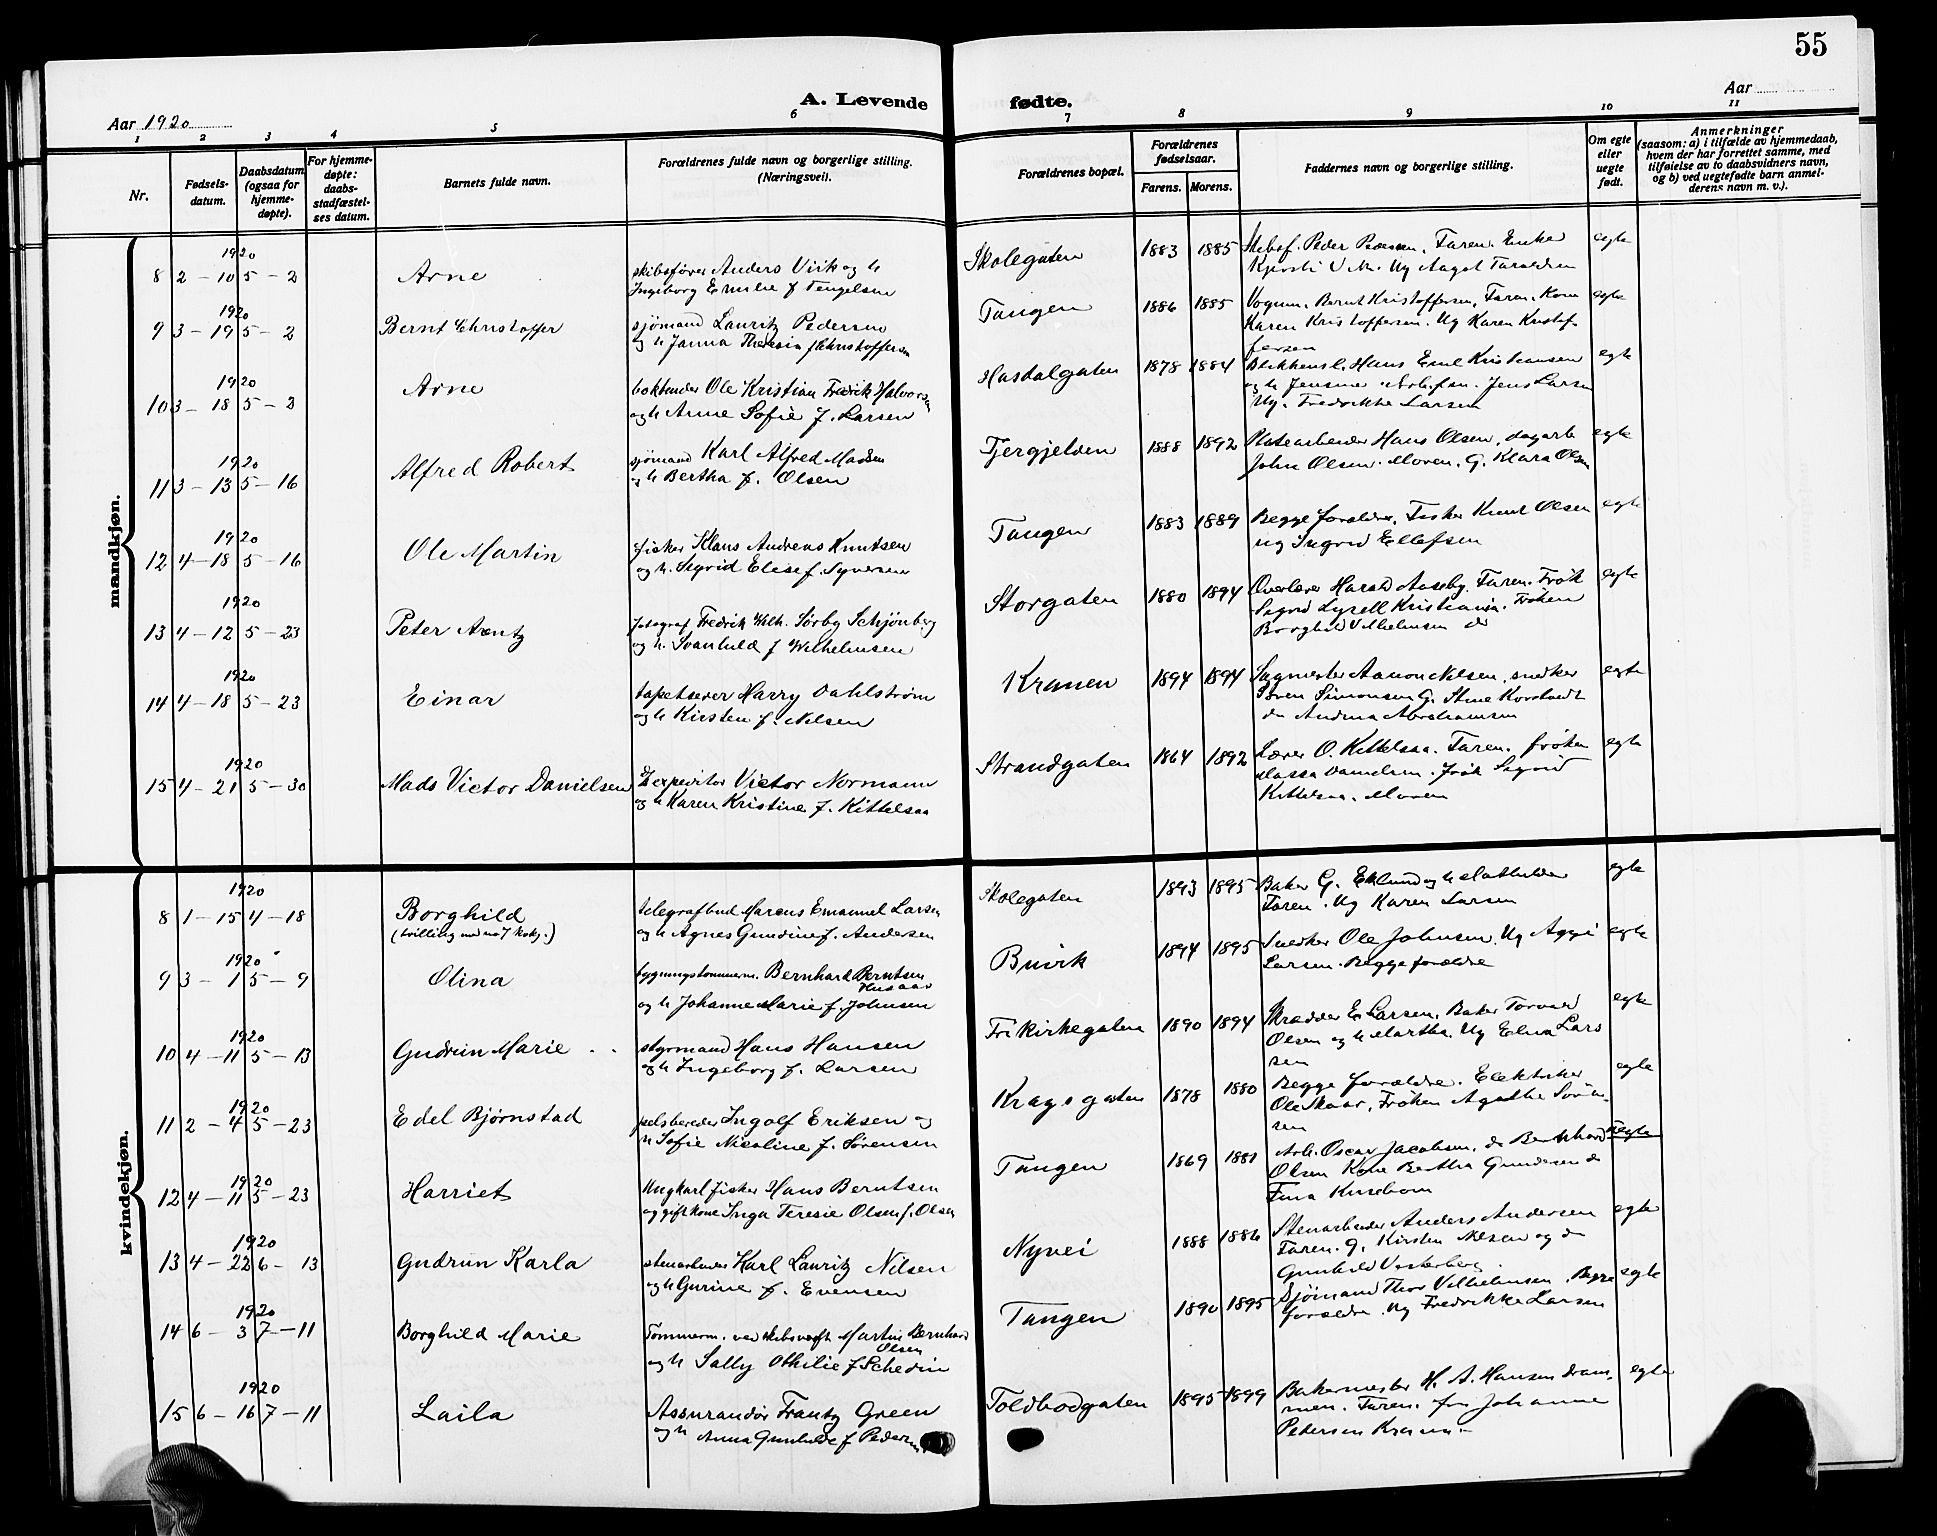 55
A. Levende fødte.
Aar 1920
Aar
1 2 3 4 5 6 7 8 9 10 11
Nr.
Fødsels-
datum.
Daabsdatum
(ogsaa for
hjemme-
døpte).
For hjemme-
døpte:
daabs-
stadfæstel-
ses datum.
Barnets fulde navn.
Forældrenes fulde navn og borgerlige stilling.
(Næringsvei).
Forældrenes bopæl.
Forældrenes
fødselsaar.
Farens. Morens.
Faddernes navn og borgerlige stilling.
Om egte
eller
uegte
født.
Anmerkninger
(saasom: a) i tilfælde av hjemmedaab,
hvem der har forrettet samme, med
tilføielse av to daabsvidners navn,
og b) ved uegtefødte barn anmel-
derens navn m. v.).
mandkjøn.
1920
8 2-10 5-2 Arne
skibsfører Anders Viik og h
Ingeborg Emilie f Tengelsen
Skolegaten 1883 1885
Skibsf. Peder Pedersen. Faren. Enke
Kjersti Ug Aagot Taraldsen
egte
1920
9 3-19 5-2 Bernt Christoffer
sjømand Lauritz Pedersen
og h Janna Theresia f Christoffersen
Tangen 1886 1885
Vognm. Bernt Kristoffersen, Faren. Kone
Karen Kristoffersen. Ug Karen Kristof
fersen
egte
1920
10 3-18 5-2 Arne
bokbinder Ole Kristian Fredrik Halvorsen
og h Anne Sofie f. Larsen
Hasdalgaten 1878 1884
Blikkensl. Hans Emil Kristiansen
og h Jensine Jens Larsen
Ug. Fredrikke Larsen
egte
1920
11 3-13 5-16 Alfred Robert
sjømand Karl Alfred Madsen
og h Bertha f. Olsen
Tjergjelden 1888 1892
Platearbeider Hans Olsen, dagarb
John Olsen. Moren. G. Klara Olsen
egte
1920
12 4-18 5-16 Ole Martin
fisker Klaus Andreas Knutsen
og h. Sigrid Elise f. Syversen
Tangen 1883 1889
Begge forældre, Fisker Knut Olsen
ug Ingrid Ellefsen
egte
1920
13 4-12 5-23 Peter Arentz
fotograf Fredrik Wilh. Sørby Schjønberg
og h. Svanhild f Wilhelmsen
Storgaten 1880 1894
Overlærer Harald Aaseby. Faren. Frøk
Sigrid Lysell Kristiania. Frøken
Borghild Vilhelmsen do
egte
1920
14 4-18 5-23 Einar
tapetserer Harry Dahlstrøm
og h Kirsten f. Nilsen
Kranen 1894 1894
Sagmester Aanon Nilsen, snedker
Søren Simonsen G. Stine Korstvedt
do Andrea Abrahamsen
egte
1920
15 4-21 5-30 Mads Victor Danielsen
Expeditør Victor Normann
og h Karen Kristine f. Kittelsaa
Strandgaten 1864 1892
Lærer O. Kittelsaa. Faren. frøken
Danielsen. Frøk Sigrid
Kittelsaa. Moren
egte
kvindekjøn.
1920
8 1-15 4-18 Borghild
(tvilling med no 7 )
telegrafbud Marcus Emanuel Larsen
og h Agnes Gundine f. Andersen
Skolegaten 1893 1895
Baker G. Eklund og h Mathilde
Faren. Ug Karen Larsen
egte
1920
9 3-1 5-9 Olina
bygningstommerm. Bernhard Berntsen
Husaas
og h Johanne Marie f. Johnsen
Buvik 1894 1895
Snedker Ole Johnsen, Ug Aggi
Larsen. Begge forældre
egte
1920
10 4-11 5-13 Gudrun Marie
styrmand Hans Hansen
og h Ingeborg f. Larsen
Frikirkegaten 1890 1894
Skrædder E. Larsen, Baker Torvald
Olsen og h Martha. Ug Edna Lars
sen
egte
1920
11 2-4 5-23 Edel Bjørnstad
pelsbereder Ingolf Eriksen og
h Sofie Nicoline f. Sørensen
Kragsgaten 1878 1880
Begge forældre. Elektriker
Ole Skaar, Frøken Agathe Søren-
sen
egte
1920
12 4-11 5-23 Harriet
Ungkarl fisker Hans Berntsen
og gift kone Inga Teresie Olsen f. Olsen
Tangen 1869 1881
Arb. Oscar Jacobsen, do Bernhard
Olsen Kone Bertha Gundersen do
Tina
uegte
1920
13 4-22 6-13 Gudrun Karla
stenarbeider Karl Lauritz Nilsen
og h Gurine f. Evensen
Nyvei 1888 1886
Stenarbeider Anders Andersen
Faren. G. Kirsten Nilsen og do
Gunhild Vesterberg
egte
1920
14 6-3 7-11 Borghild Marie
Tømmerm. ved skibsverft Martin Bernhard
Olsen
og h Sally Othilie f Schedin
Tangen 1890 1895
Sjømand Thor Vilhelmsen. Begge
forældre. Ug Fredrikke Larsen
egte
1920
15 6-16 7-11 Laila
Assurandør Frantz Green
og h Anna Gunhilde f Pedersen
Toldbodgaten 1895 1899
Bakermester H. A. Hansen Dram-
men. Faren. frk Johanne
Pedersen Kranen
egte